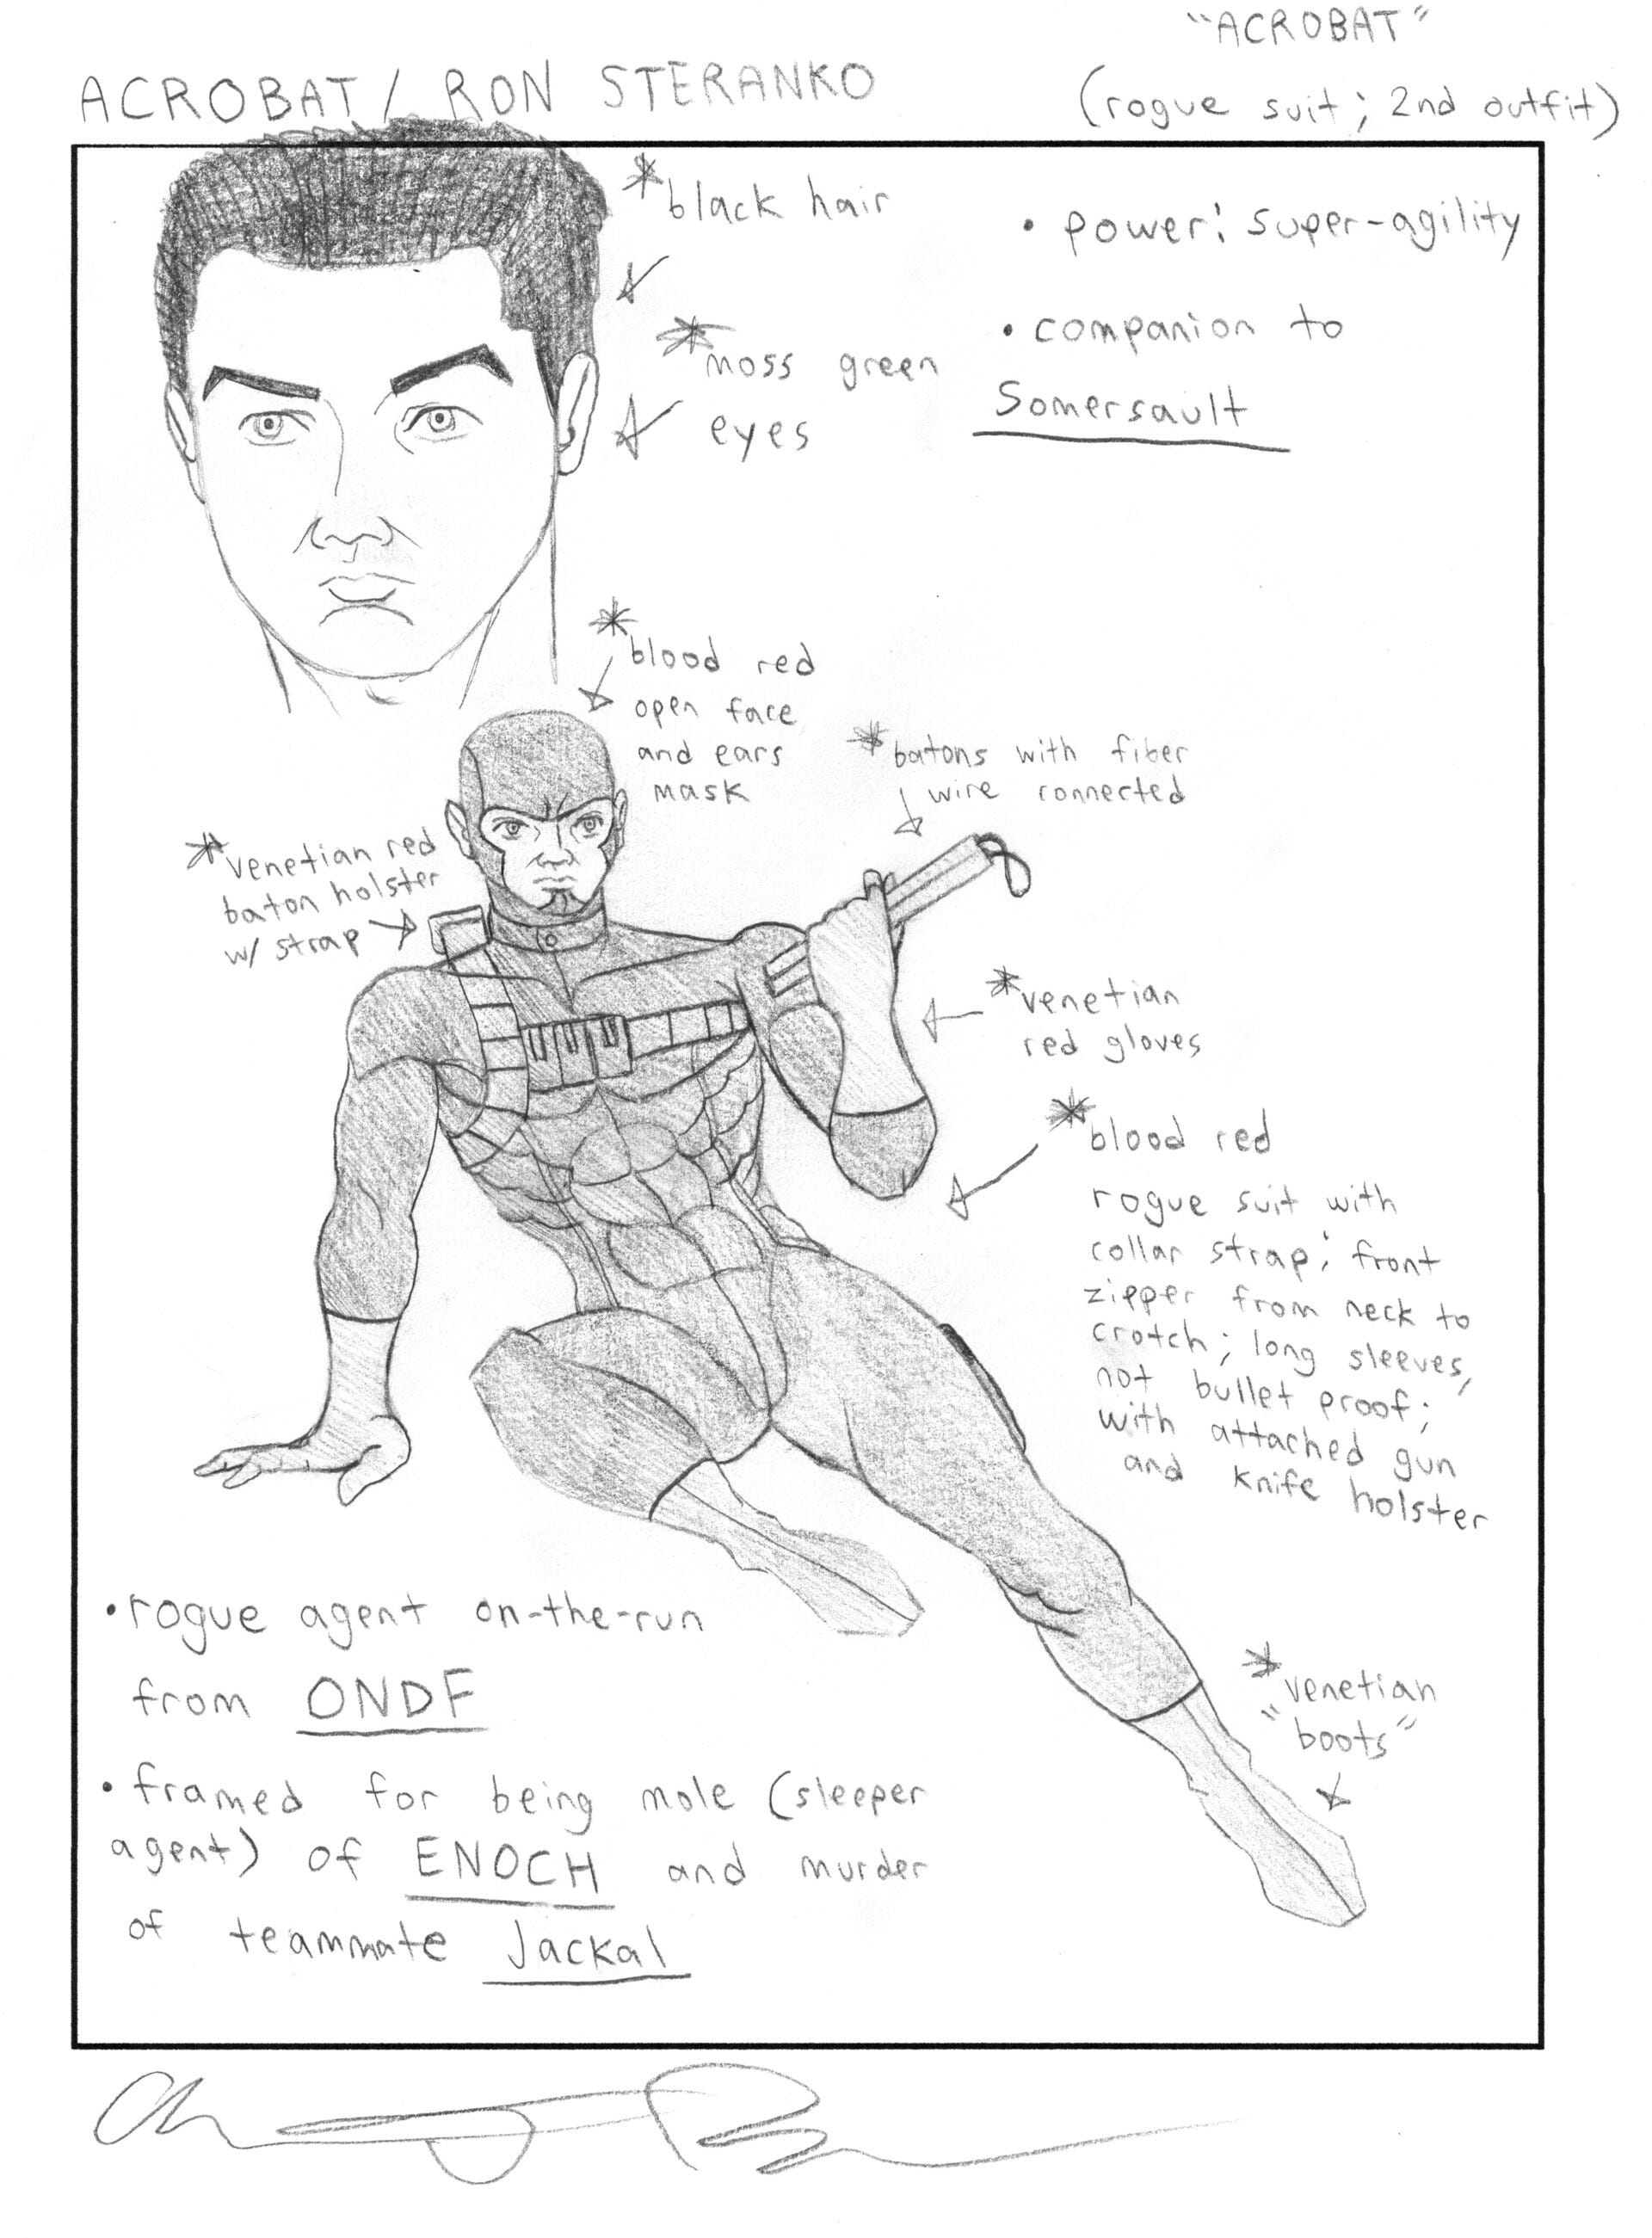 "ACROBAT"
ACROBAT / RON STERANKO
(rogue suit; 2nd outfit)
*black hair
• power: super-agility
• companion to
Somersault
*moss green
eyes
*blood red
open face
and ears
mask
*batons with fiber
wire connected
*venetian red
baton holster
w/ strap
*venetian
red gloves
*blood red
rogue suit with
collar strap; front
zipper from neck to
crotch; long sleeves,
not bullet proof;
with attached gun
and knife holster
•rogue agent on-the-run
from ONDF
• framed for being mole (sleeper
agent) of ENOCH and murder
of teammate Jackal
*venetian
"boots"